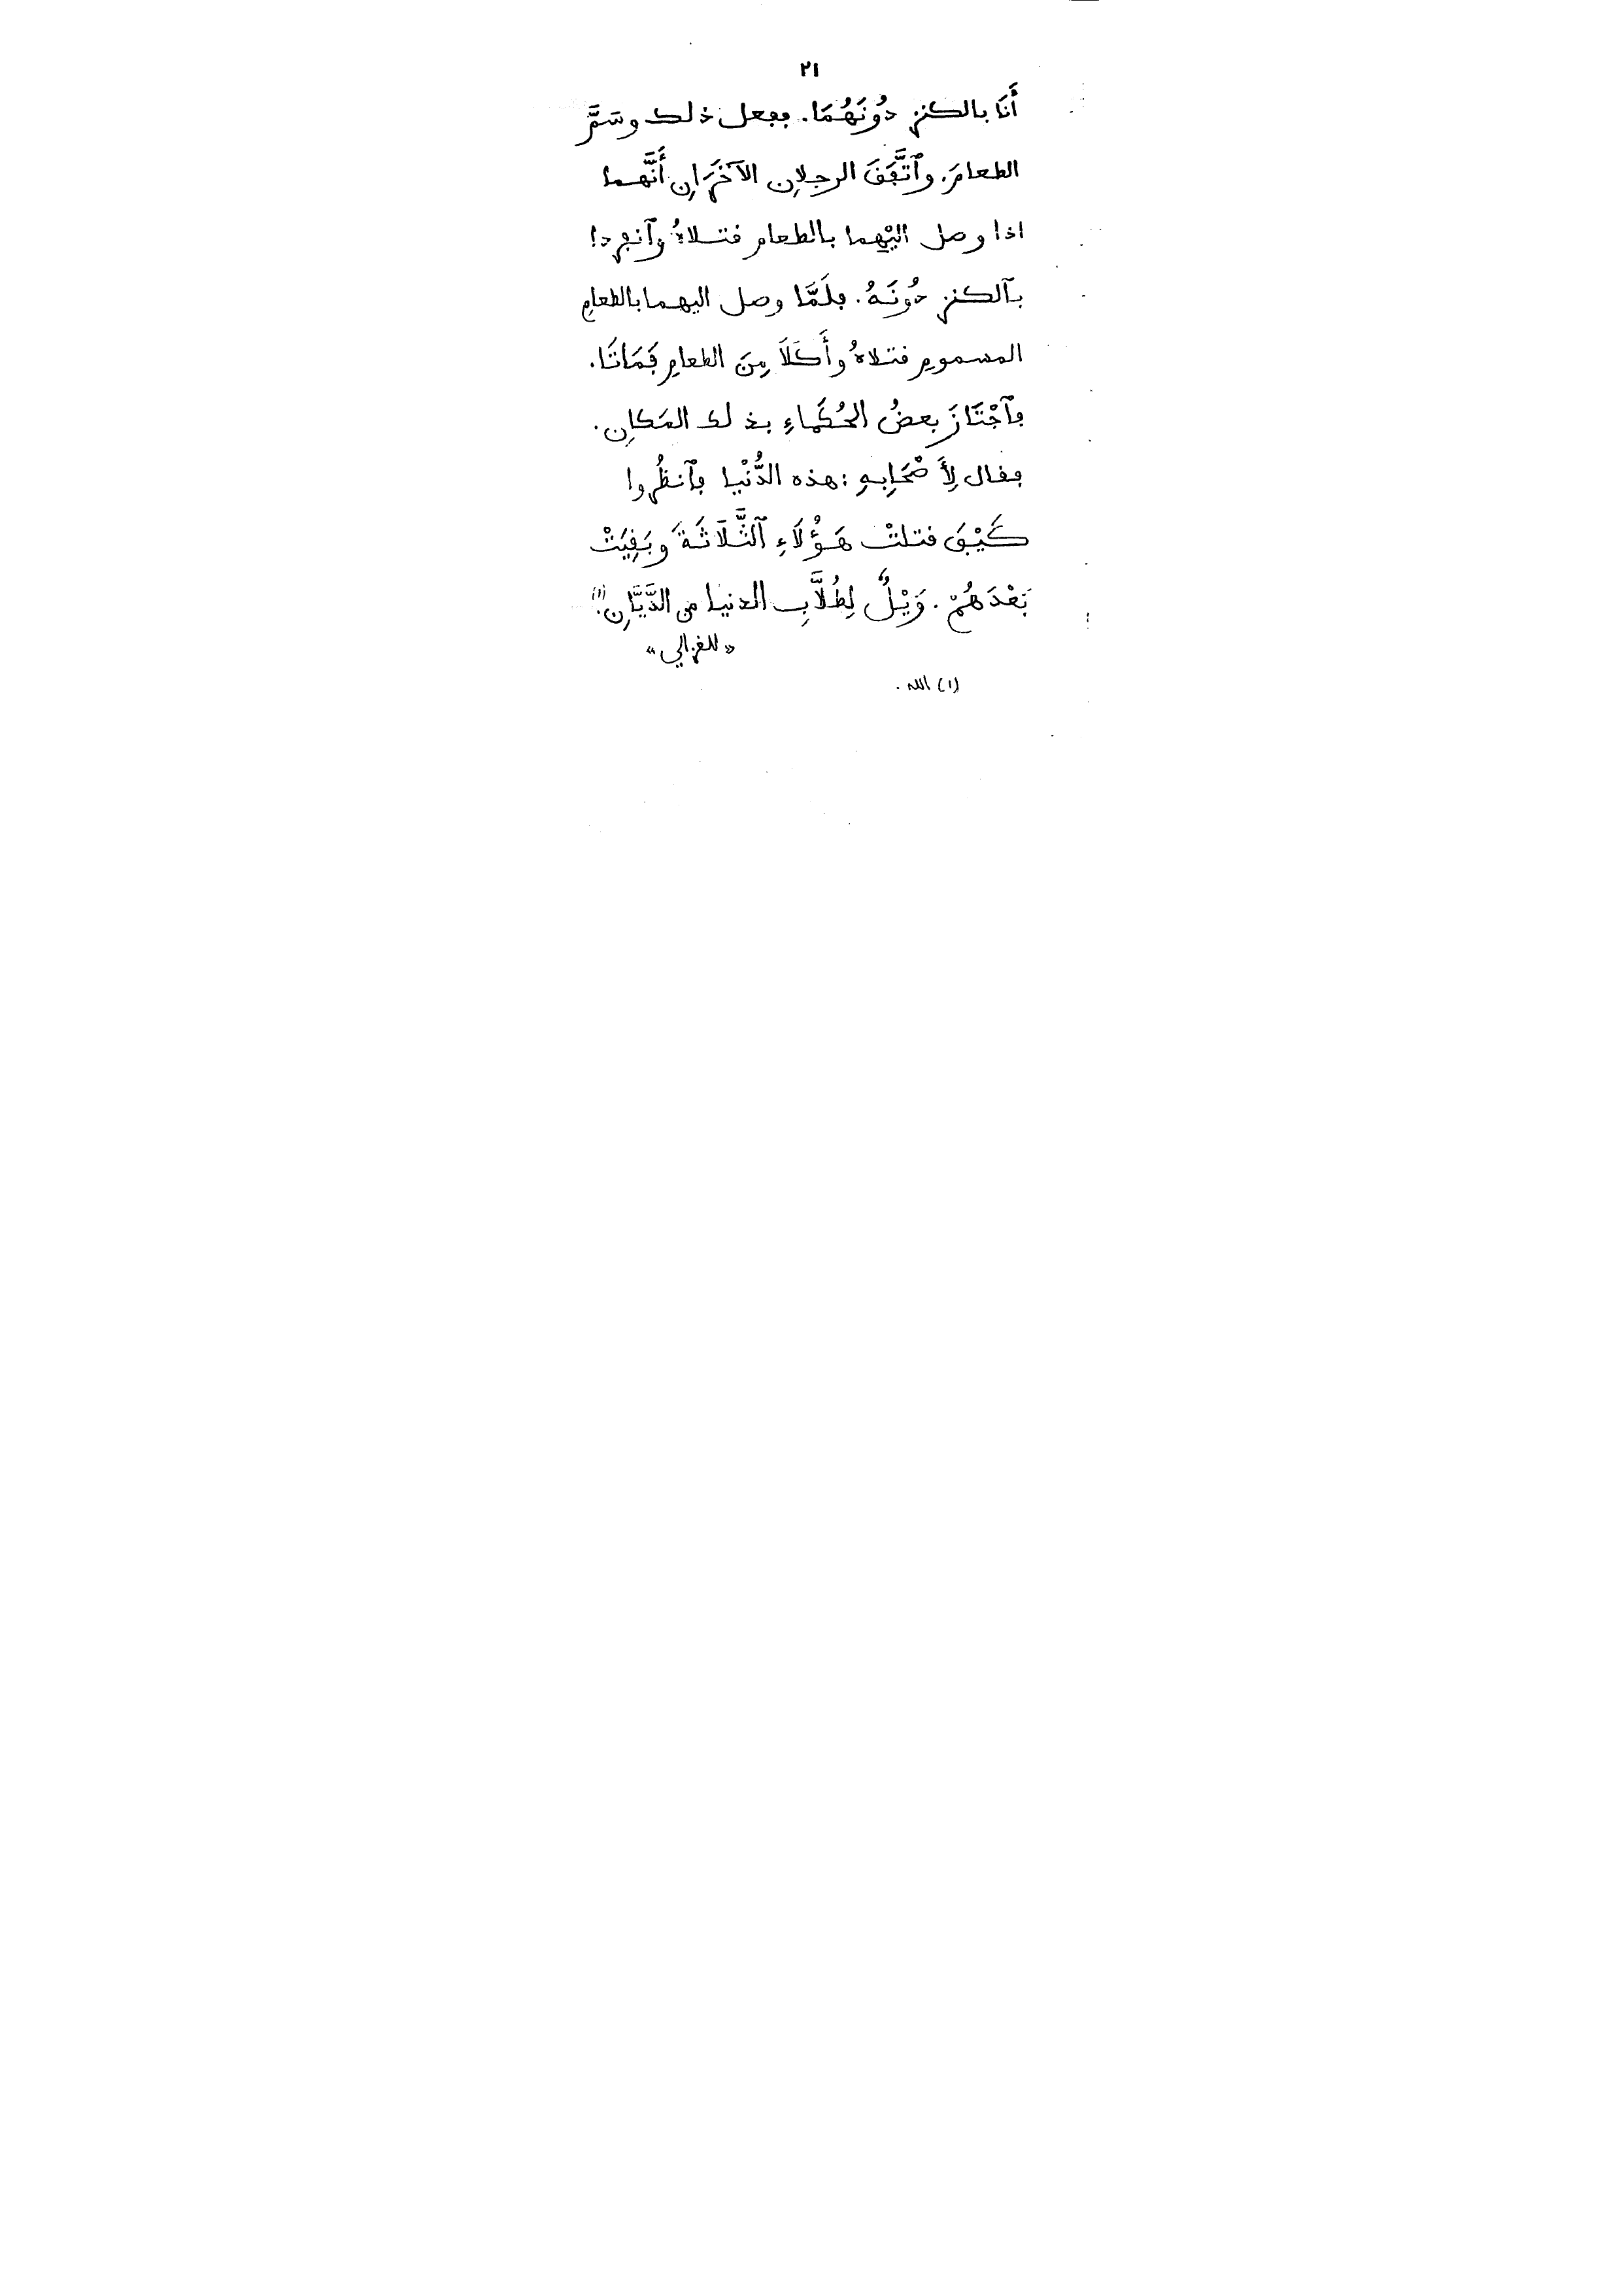 ٢١
أَنَا بالكنز دُونَهُمَا. ڢڢعل ذلك وسَمَّ
الطعامَ. وٱتَّڢَڧَ الرجلانِ الآخَرَانِ أَنَّهما
اذا وصل اليْهِما بالطعام ڧتلاهُ وٱنڢردا
بٱلكنز دُونَهُ. ڢلَمَّا وصل اليهما بالطعامِ
المسمومِ ڧتلاهُ وأَكَلَا مِنَ الطعامِ ڢَمَاتَا.
ڢٱجْتَازَ بعضُ الحُكَماءِ بذلك المَكانِ.
ڢڧال لِأَصْحَابِهِ : هذه الدُّنْيا ڢٱنظُروا
كَيْڢَ ڧتلتْ هَؤُلَاءِ ٱلثَّلَاثَةَ وبَڧِيَتْ
بَعْدَهُمْ. وَيْلٌ لِطُلَّابِ الدنيا من الدَّيَّانِ!(١)
«للغزالي»
(١) الله.